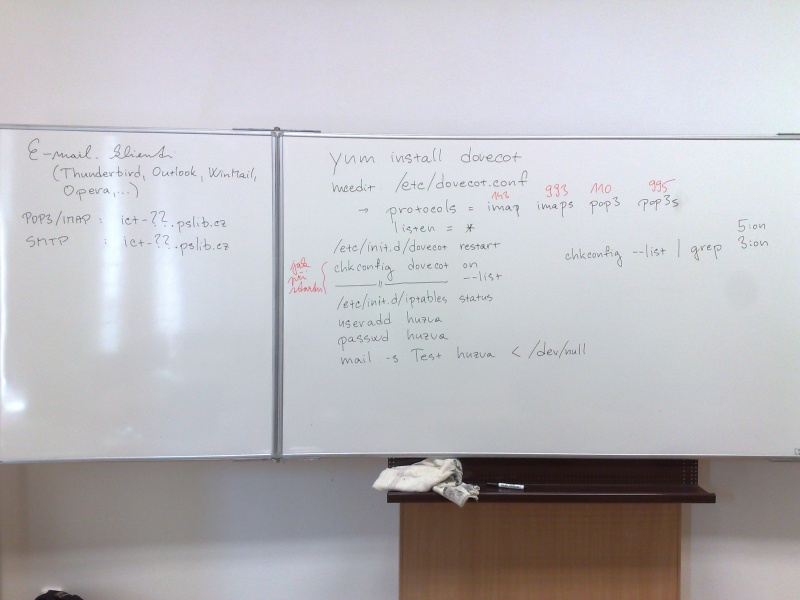 E-mail. klienti
(Thunderbird, Outlook, WinMail,
Opera,...)
POP3/IMAP : ict-??.pslib.cz
SMTP : ict-??.pslib.cz
yum install dovecot
mcedit /etc/dovecot.conf
143 993 110 995
→ protocols = imap imaps pop3 pop3s
listen = *
/etc/init.d/dovecot restart
chkconfig dovecot on
——"—— --list
/etc/init.d/iptables status
useradd huzva
passwd huzva
mail -s Test huzva < /dev/null
při
startu
5:on
chkconfig --list | grep 3:on